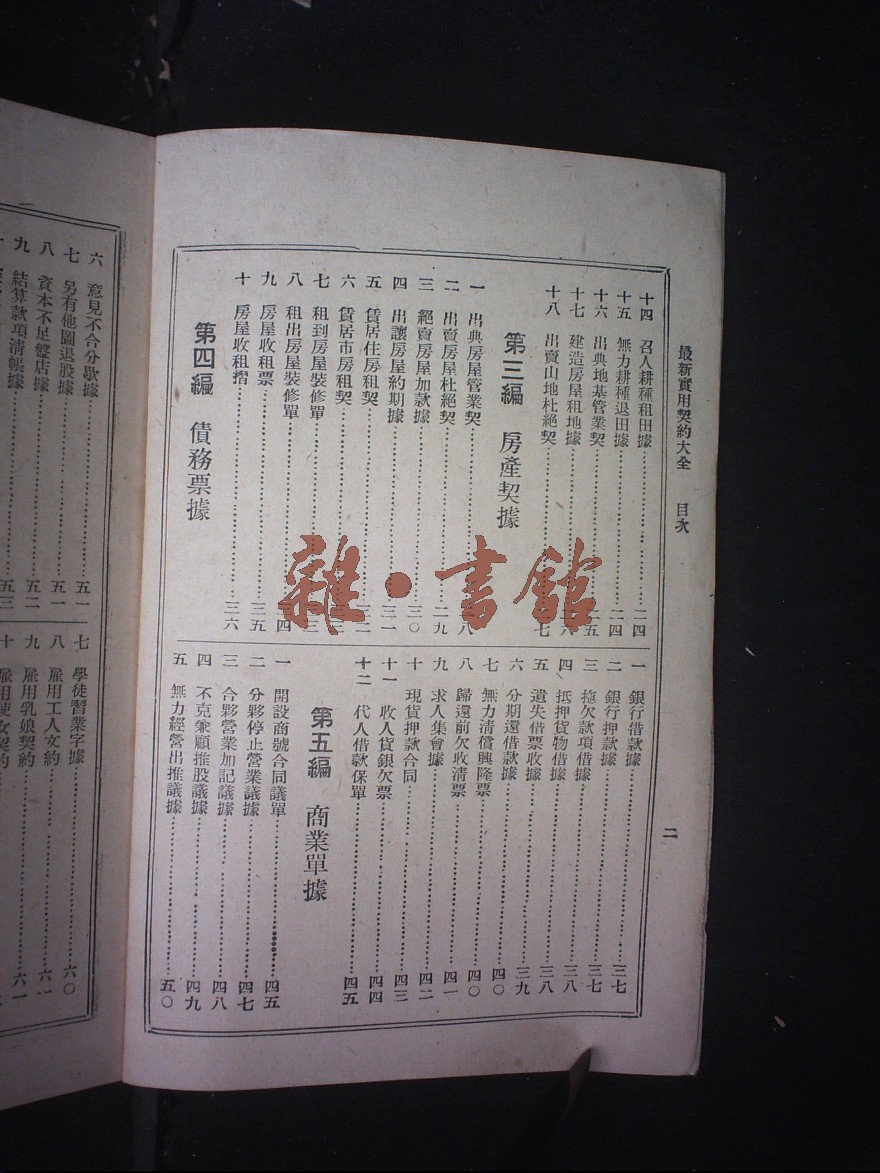 最新實用契約大全 目次
二
十四 召人耕種租田據 二四
十五 無力耕種退田據 二四
十六 出典地基管業契 二五
十七 建造房屋租地據
十八 出賣山地杜絕契
第三編 房產契據
一 出典房屋管業契
二 出賣房屋杜絕契 二九
三 絕賣房屋加款據 三〇
四 出讓房屋約期據 三一
五 賃居住房租契
六 賃居市房租契
七 租到房屋裝修單
八 租出房屋裝修單
九 房屋收租票 三五
十 房屋收租摺 三六
第四編 債務票據
一 銀行借款據 三七
二 銀行押款據
三 拖欠款項借據 三七
四 抵押貨物借據 三八
五 遺失借票收據 三八
六 分期還借款據 三九
七 無力清償興隆票 四〇
八 歸還前欠收清票 四〇
九 求人集會據 四一
十 現貨押款合同 四二
十一 收人貨銀欠票 四三
十二 代人借款保單 四四
四五
第五編 商業單據
一 開設商號合同議單 四五
二 分夥停止營業議據 四七
三 合夥營業加記議據 四八
四 不克兼顧推股議據 四九
五 無力經營出推議據 五〇
六 意見不合分歇據 五一
七 另有他圖退股據 五一
八 資本不足盤店據 五二
九 結算款項清帳據 五三
七 學徒習業字據 六〇
八 雇用工人文約 六一
九 雇用乳娘契約 六一
十 雇用使女契約
雜·書館